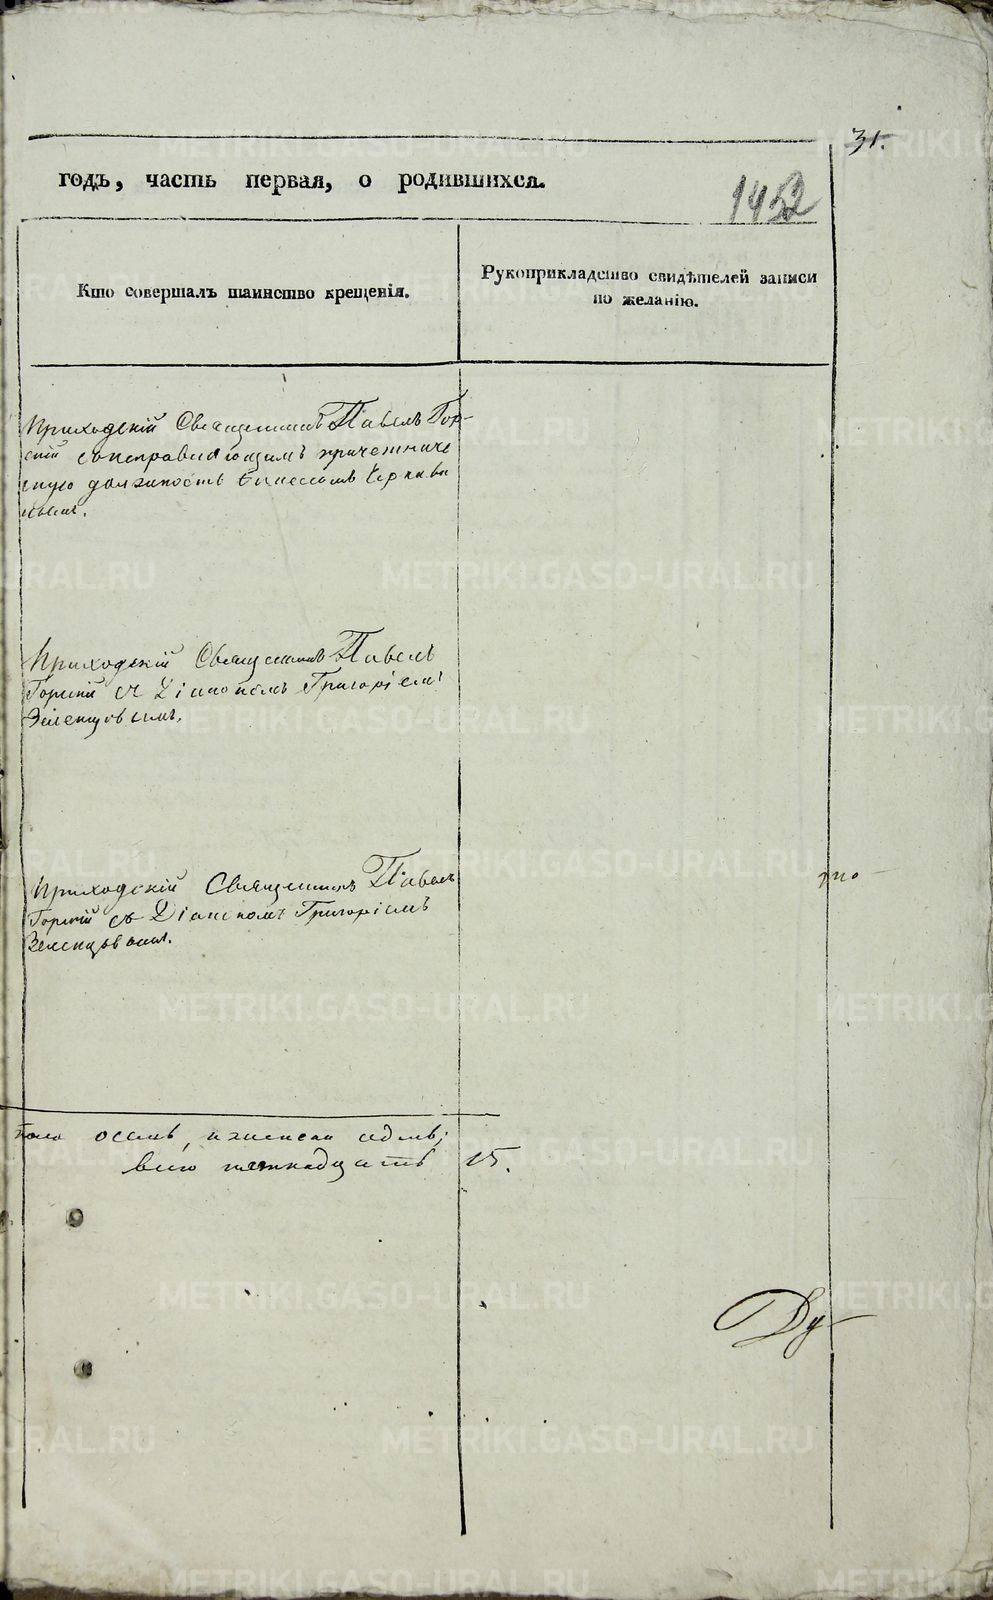 31.
годъ, часть первая, о родившихся.
1452
Кто совершалъ таинство крещенія.
Рукоприкладство свидѣтелей записи
по желанію.
Приходскій Священникъ Павелъ Гор-
скій съ исправляющимъ причетниче
скую должность
Приходскій Священникъ Павелъ
Горскій съ Діакономъ Григоріемъ
Зеленцовымъ.
Приходскій Священникъ Павелъ
Горскій съ Діакономъ Григоріемъ
Зеленцовымъ.
пола осемь, и женска седмь;
всего пятнадцать 15.
Ду-
METRIKI.GASO-URAL.RU